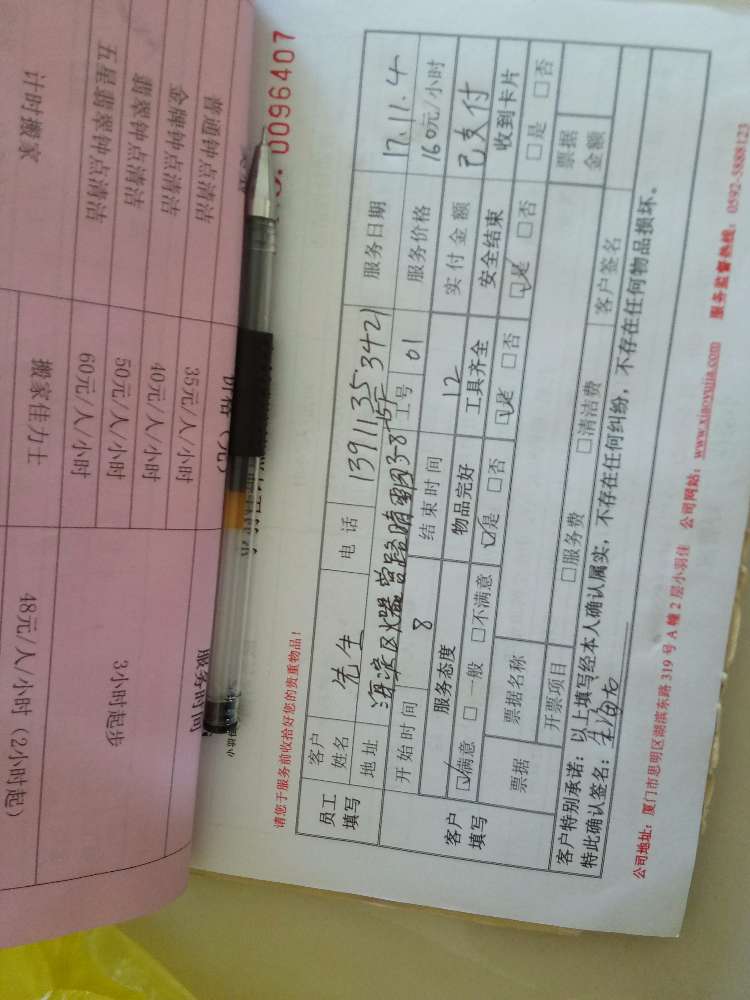 NO. 0096407
请您于服务前收拾好您的贵重物品！
员工填写
客户姓名 先生 电话 13911353421 服务日期 17.11.4
地址 服务价格 160元/小时
开始时间 8 结束时间 12 工号 01 实付金额 已支付
客户填写
服务态度 物品完好 工具齐全 安全结束 收到卡片
☑满意 □一般 □不满意 ☑是 □否 ☑是 □否 ☑是 □否 □是 □否
票据 票据名称 票据金额
开票项目 □服务费 □清洁费 客户签名
客户特别承诺：以上填写经本人确认属实，不存在任何纠纷，不存在任何物品损坏。
特此确认签名：
公司地址：厦门市思明区湖滨东路319号A幢2层小羽佳 公司网站：www.xiaoyujia.com 服务监督热线：0592-5888123
普通钟点清洁 35元/人/小时
金牌钟点清洁 40元/人/小时
翡翠钟点清洁 50元/人/小时
五星翡翠钟点清洁 60元/人/小时
3小时起步
计时搬家 搬家佳力士 48元/人/小时（2小时起）
服务时间
小羽佳